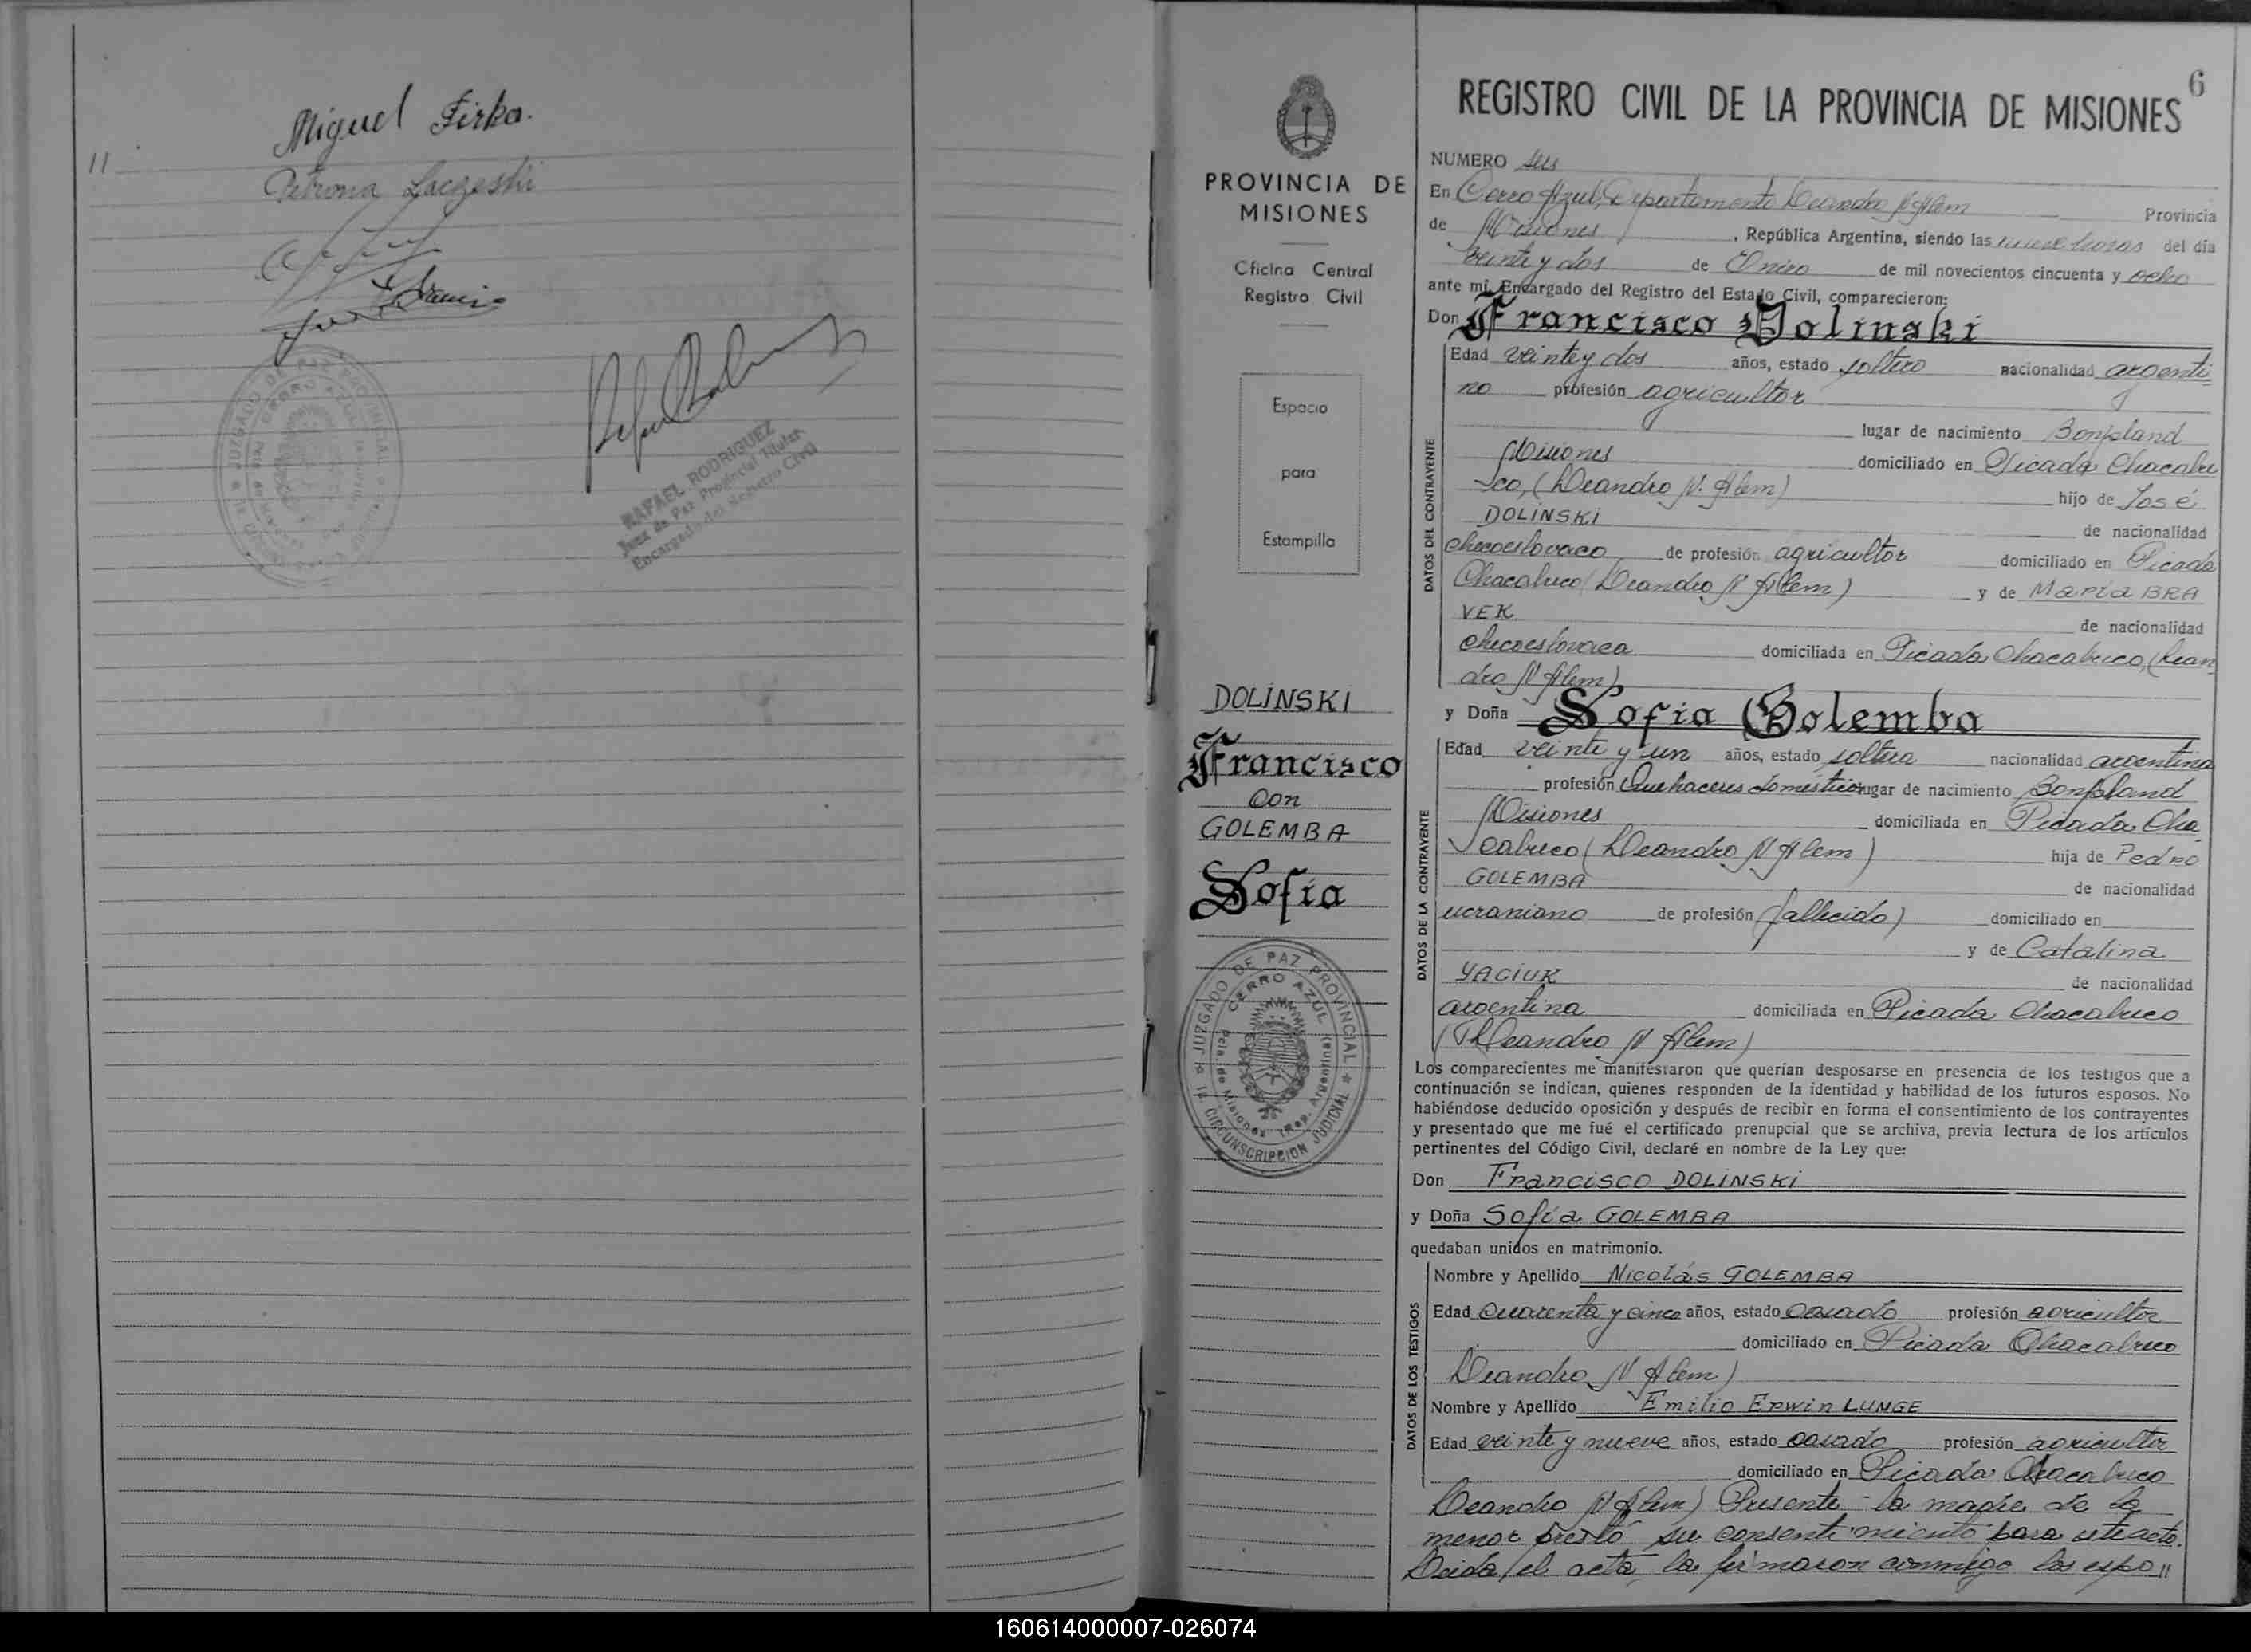 Miguel Firka.
11
Petrona
JUZGADO DE PAZ PROVINCIAL
CERRO AZUL
RAFAEL RODRIGUEZ
Juez de Paz Provincial Titular
Encargado del Registro Civil
PROVINCIA DE
MISIONES
Oficina Central
Registro Civil
Espacio
para
Estampilla
DOLINSKI
Francisco
con
GOLEMBA
Sofía
JUZGADO DE PAZ PROVINCIAL
CERRO AZUL
Pcia. de Misiones (Rep. Argentina)
CIRCUNSCRIPCION JUDICIAL
6
REGISTRO CIVIL DE LA PROVINCIA DE MISIONES
NUMERO seis
En Cerro Azul, Departamento Leandro N Alem Provincia
de Misiones, República Argentina, siendo las nueve horas del día
veinte y dos de Enero de mil novecientos cincuenta y ocho
ante mi, Encargado del Registro del Estado Civil, comparecieron:
Don Francisco Dolinski
DATOS DEL CONTRAYENTE
Edad veinte y dos años, estado soltero nacionalidad argenti
no profesión agricultor
lugar de nacimiento Bonpland
Misiones domiciliado en Picada Chacabu
co, (Leandro N. Alem) hijo de José
DOLINSKI de nacionalidad
checoeslovaco de profesión agricultor domiciliado en Picada
Chacabuco (Leandro N Alem) y de María BRA
VEK de nacionalidad
checoeslovaca domiciliada en Picada Chacabuco, (Lean
dro N Alem)
y Doña Sofia Golemba
DATOS DE LA CONTRAYENTE
Edad veinte y un años, estado soltera nacionalidad argentina
profesión Quehaceres domésticos lugar de nacimiento Bonpland
Misiones domiciliada en Picada Cha
cabuco (Leandro N Alem) hija de Pedro
GOLEMBA de nacionalidad
ucraniano de profesión (fallecido) domiciliado en
y de Catalina
YACIUK de nacionalidad
argentina domiciliada en Picada Chacabuco
(Leandro N Alem)
Los comparecientes me manifestaron que querían desposarse en presencia de los testigos que a
continuación se indican, quienes responden de la identidad y habilidad de los futuros esposos. No
habiéndose deducido oposición y después de recibir en forma el consentimiento de los contrayentes
y presentado que me fué el certificado prenupcial que se archiva, previa lectura de los artículos
pertinentes del Código Civil, declaré en nombre de la Ley que:
Don Francisco DOLINSKI
y Doña Sofía GOLEMBA
quedaban unidos en matrimonio.
DATOS DE LOS TESTIGOS
Nombre y Apellido Nicolás GOLEMBA
Edad cuarenta y cinco años, estado casado profesión agricultor
domiciliado en Picada Chacabuco
Leandro N Alem)
Nombre y Apellido Emilio Erwin LUNGE
Edad veinte y nueve años, estado casado profesión agricultor
domiciliado en Picada Chacabuco
Leandro N Alem) Presente la madre de la
menor prestó su consentimiento para este acto.
Leída el acta, la firmaron conmigo los espo//
160614000007-026074